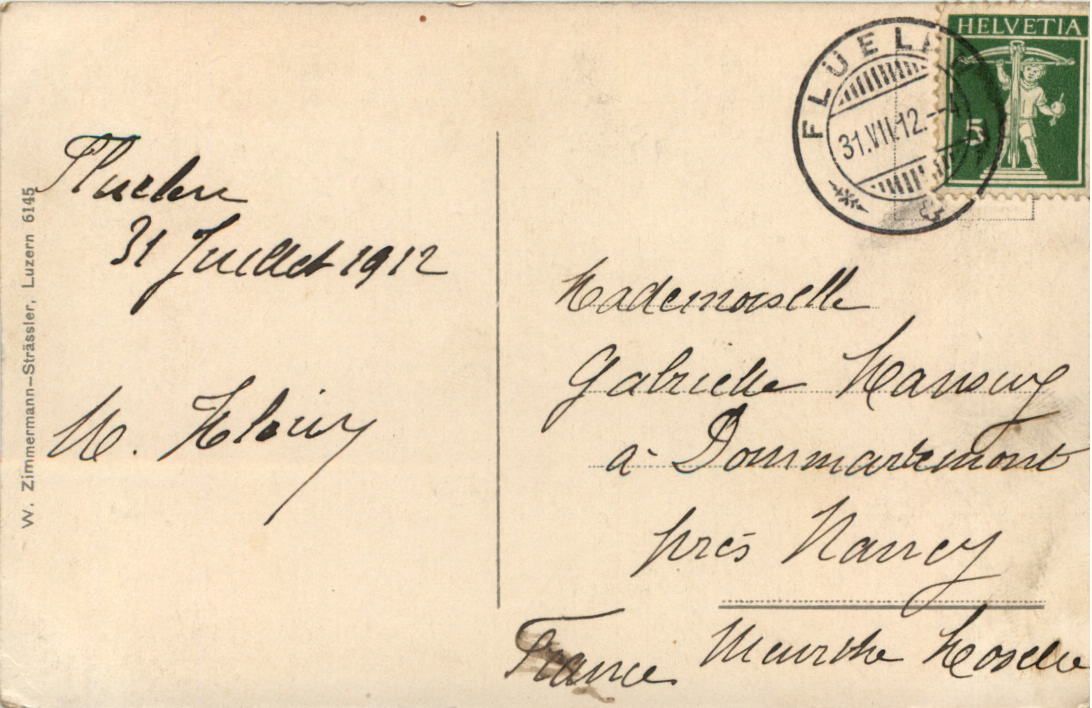 HELVETIA
5
FLÜELEN
31.VII.12.-4
Fluelen
31 Juillet 1912
W. Zimmermann-Strässler, Luzern 6145
Mademoiselle
Gabrielle Mansuy
à Dommartemont
près Nancy
Meurthe Moselle
France
M.